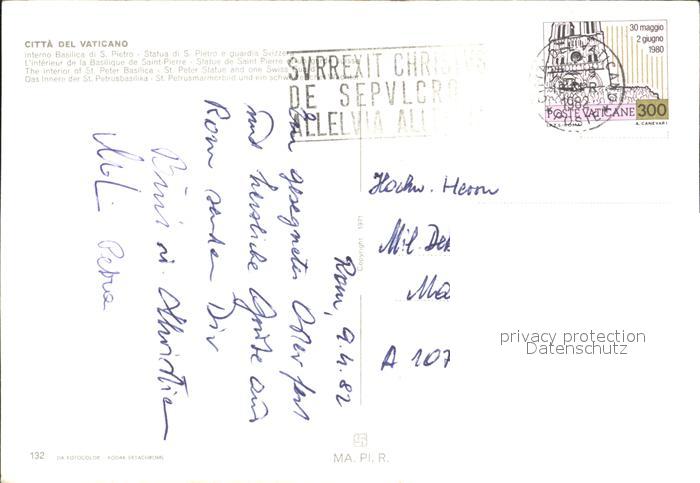 CITTÀ DEL VATICANO
Interno Basilica di S. Pietro - Statua di S. Pietro e guardia Svizze
L'intérieur de la Basilique de Saint-Pierre - Statue de Saint Pierre
The interior of St. Peter Basilica - St. Peter Statue and one Swiss
Das Innere der St. Petrusbasilika - St. Petrusmarmorbild und ein sch
SVRREXIT CHRISTVS
DE SEPVLCRO
ALLELVIA ALL
30 maggio
2 giugno
1980
POSTE VATICANE 300
A. CANEVARI
1982
Rom, 9.4.82
Ein gesegnetes Osterfest
und herzliche Grüße aus
Rom senden Dir
u. Christian
Petra
Hochw. Herrn
Mil. De
Ma
A 107
privacy protection
Datenschutz
Copyright 1971
132 DA FOTOCOLOR - KODAK EKTACHROME
MA. PI. R.